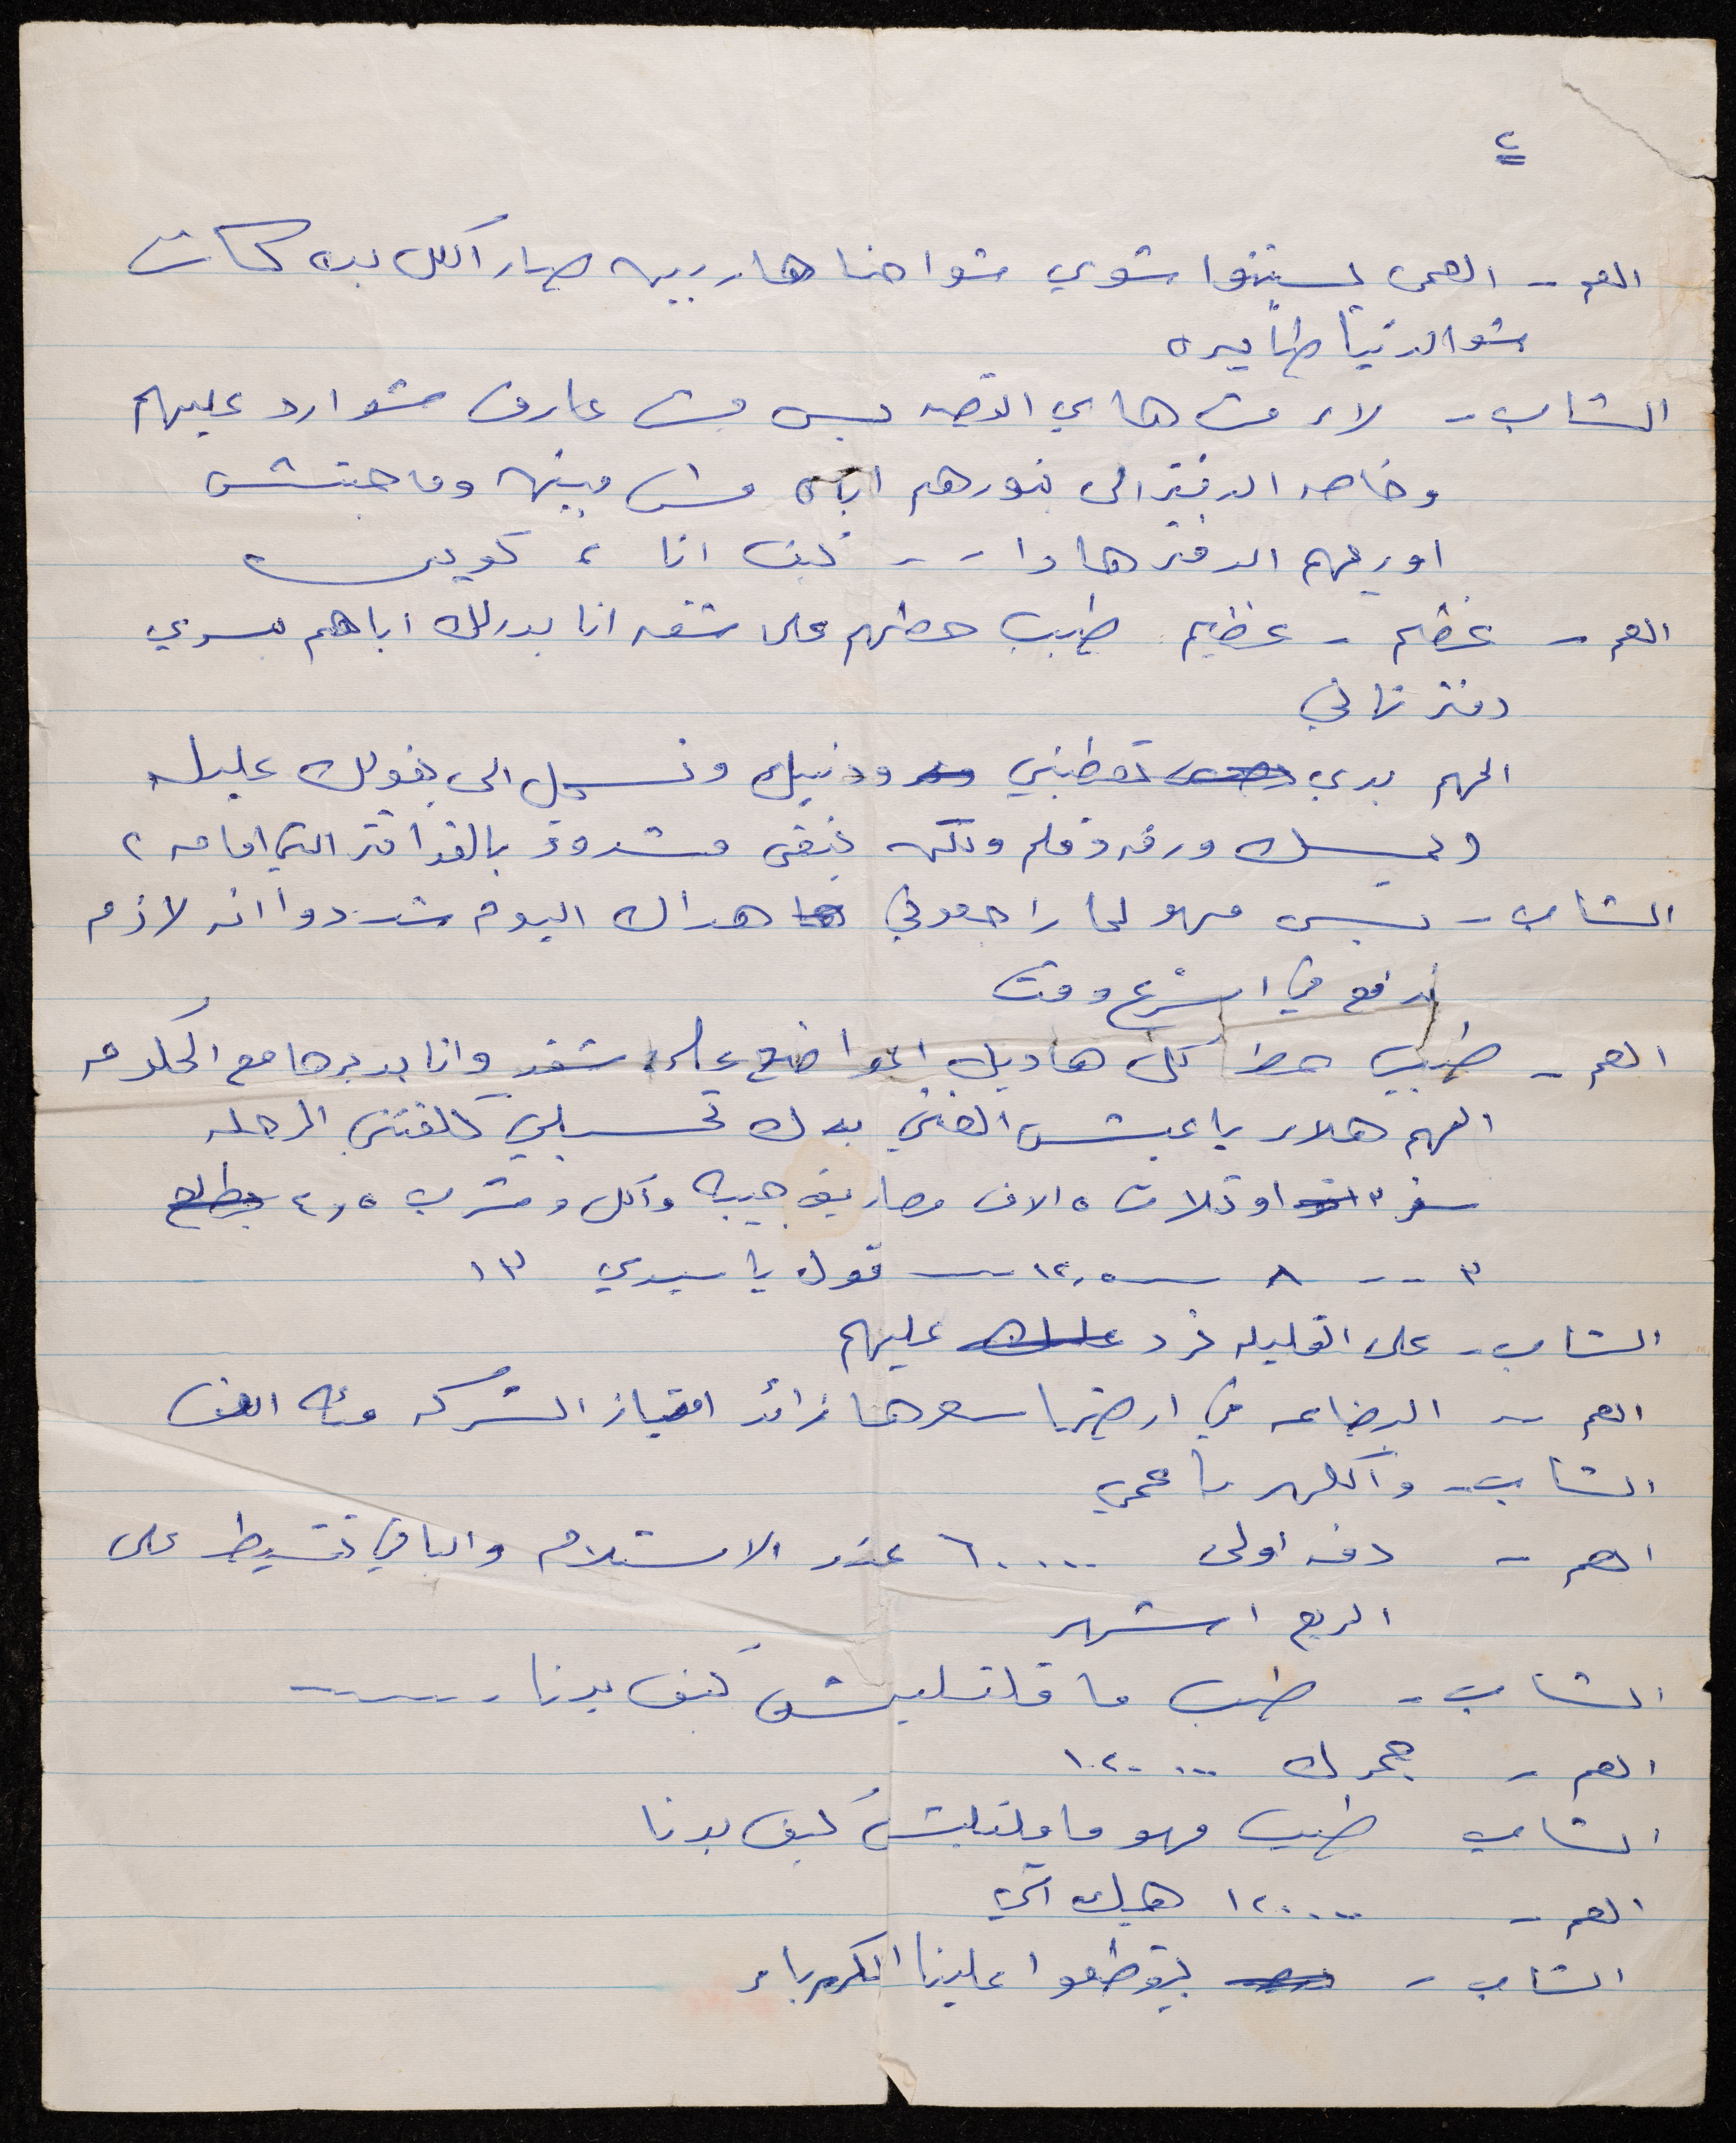 ٢
العم - العمى يستنوا شوي شو احنا هاربين صار الكل بده كاش
شو الدنيا طايره
الشاب - لاء مش هاي القصه بس مش عارف شو ارد عليهم
وخاصه الدفتر الى بنورهم اياه مش مبينه وما حبتش
اوريهم الدفتر هادا - - كيف انا ، كويس
العم - عظيم - عظيم طيب حطهم على شقه انا بدبرلك اياهم بسوي
دفتر تاني
المهم بدي تعطيني ودنيك وتسجل الى بقولك عليه
(يمسك ورقه وقلم ولكنه يبقى مشدود بالدفاتر التي امامه)
الشاب - بس مهو لما راجعوني هداك اليوم شددوا انه لازم
ندفع في اسرع وقت
العم - طيب حط كل هاديك المواضيع على شقه وانا بدبرها مع الحكومه
المهم هلاء يا عبش الغني بدك تحسبلي كلفتني الرحله
سفر ٣ او تلات ٥ الاف مصاريف جيبه واكل وشرب ٤,٥
٣ - - ٨ - ١٢,٥ - قول يا سيدي ١٣
الشاب - على القليله نرد عليهم
العم - البضاعه في ارضيها سعرها زائد امتياز الشركه مئه الف
الشاب - واكلهر يا عمي
العم - دفعه اولى ٦٠٠٠٠ عند الاستلام والباقي تقسيط على
اربع اشهر
الشاب - طيب ما قلتليش كيف بدنا - - - -
العم - جمرك ١٢٠٠٠٠
الشاب طيب مهو ما قلتليش كيف بدنا
العم - ١٢٠٠٠٠ هيك اتي
الشاب - بيقطعوا علينا الكهرباء